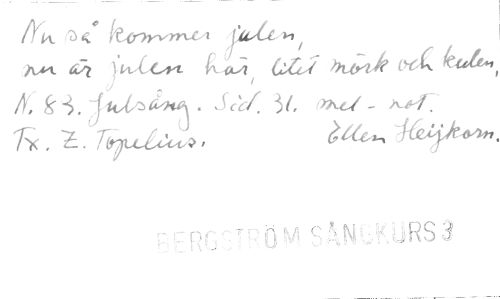 Nu så kommer julen,
nu är julen här, litet mörk och kulen,
N. 83. Julsång. Sid. 31. mel - not.
Tx. Z. Topelius. Ellen Heijkorn.
BERGSTRÖM SÅNGKURS 3